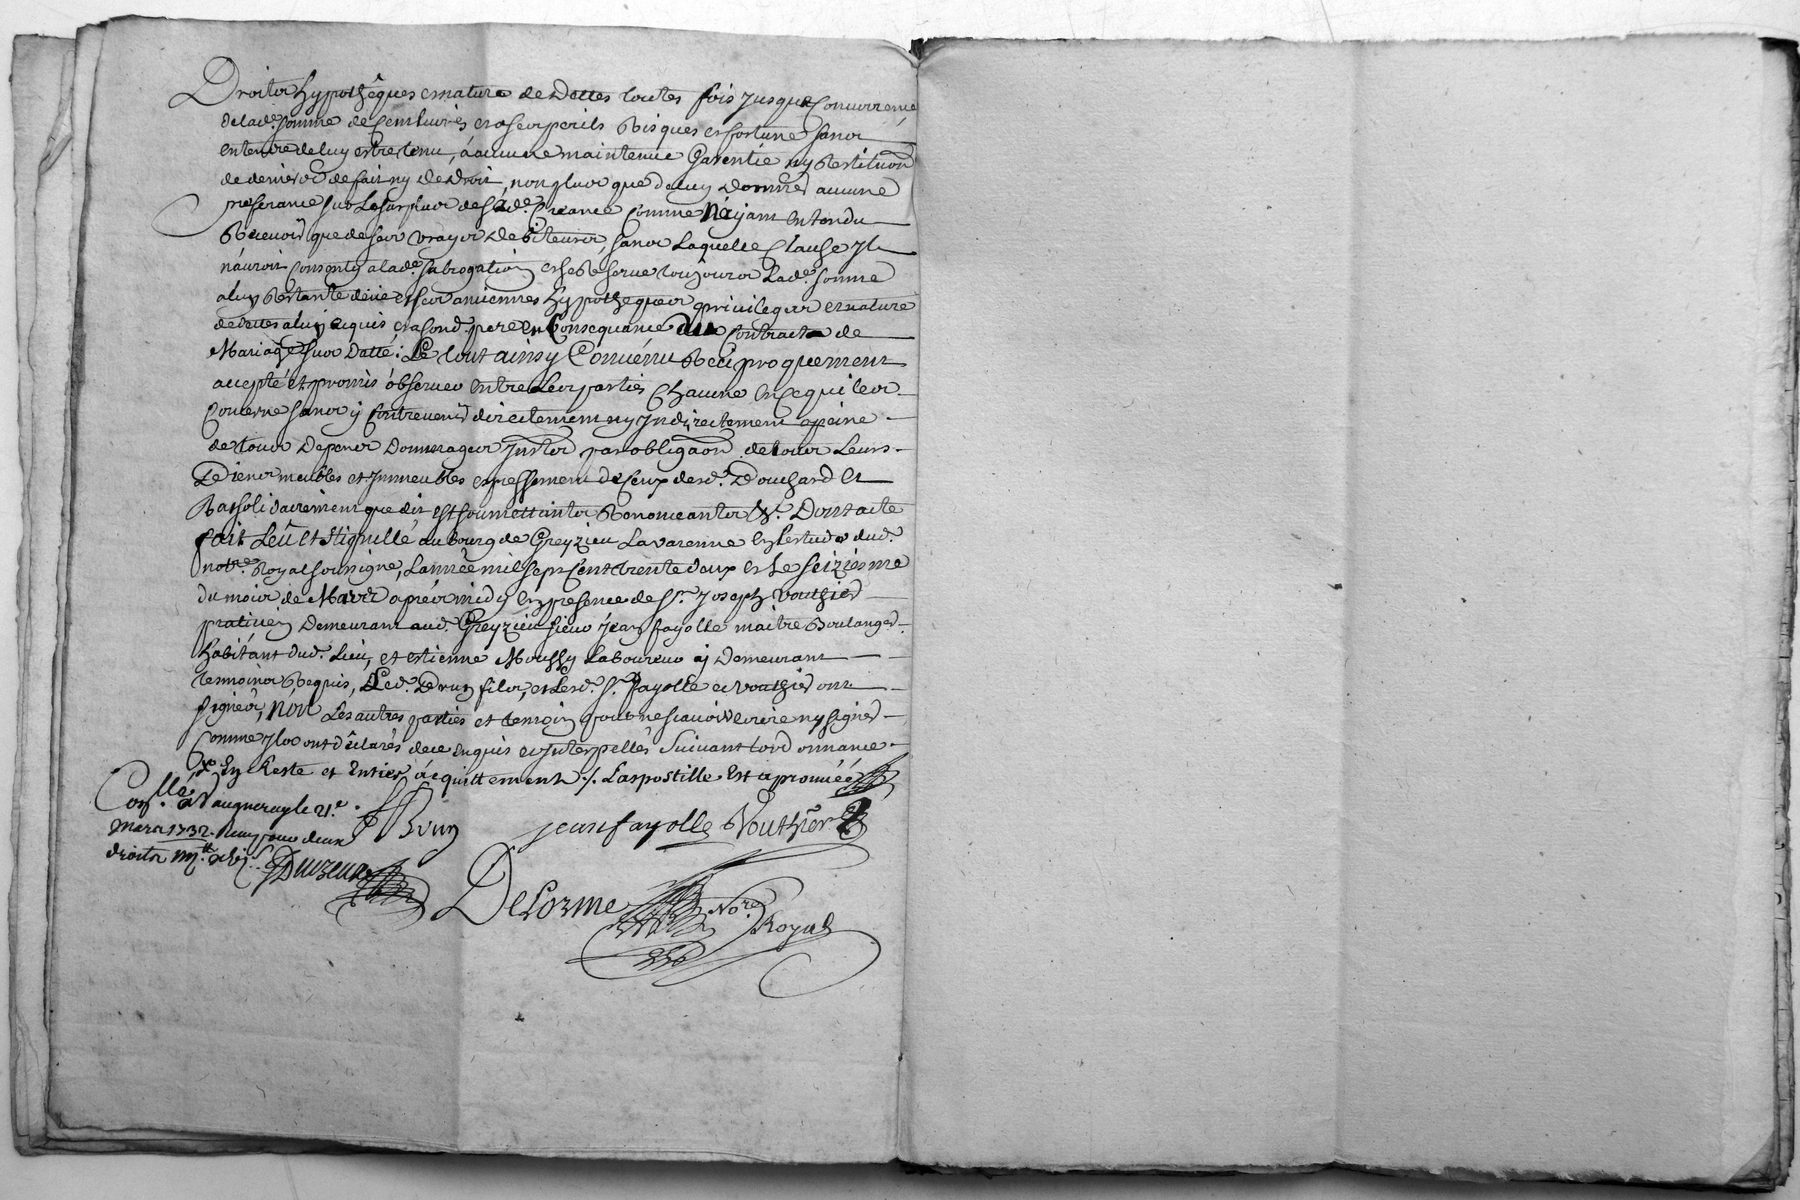 Droits hypothêques et nature de Dettes toutes fois jusqu'a Concurrence
de lad.e somme de Cent livres et a ses perils Risques et fortune sans
entendre de luy estre tenu, a aucune maintenue Garentie ny Restitu͠on
de deniers de fait ny de droit, non plus que de luy donner aucune
preferance sur Le surplus de sad.e Creance Comme N'ayant entendu
Recevoir que de ses vrays Debiteurs, sans Laquelle Clause Il
n'auroit Consenty a lad.e subrogation et se Reserve toujours Lad.e somme
a luy Restante deüe et ses anciennes hypotheques privileges et nature
de dettes a luy acquis et a son d. pere en Consequance du Contract de
Mariage sus datté; Le tout ainsy Convenu Reciproquement
accepté et promis observer entre Les parties Chacune en ce qui les
Concerne sans y Contrevenir directement ny Indirectement a peine
de tous depens Dommages Interets par obliga͠on de tous Leurs
Biens meubles et Immeubles expressement de Ceux desd. Douchard et
solidairement que dit est soumettantes Renonceantes &. Dont acte
fait Leû et Stipullé au bourg de Greyzieu Lavarenne en l'estude dud.
not.re Royal soussigne, L'année mil sept Cent trente deux et Le seizieme
du mois de Mars apres midy en presence de S.r Joseph Vouthier
praticien Demeurant aud. Greyzieu sieur Jean fayolle maitre Boulanger
habitant dud. Lieu, et estienne Moussy Laboureur aÿ Demeurant
temoins Requis, Led. Brun fils, et Lesd. S.r fayolle et Vouthier ont
signés, non Les autres parties et temoin pour ne scavoir ecrire ny signer
Comme Ils ont déclarés de ce enquis et Interpellés Suivant l'ordonnance
En Reste et Entier acquittement ./. L'apostille est aprouvéé
Con.llé a Vaugneray le 21.e
Mars 1732. Reçu sous deux
droits
Brun
jean fayolle Vouthier
Duvzeu
Delorme No.re
Royal